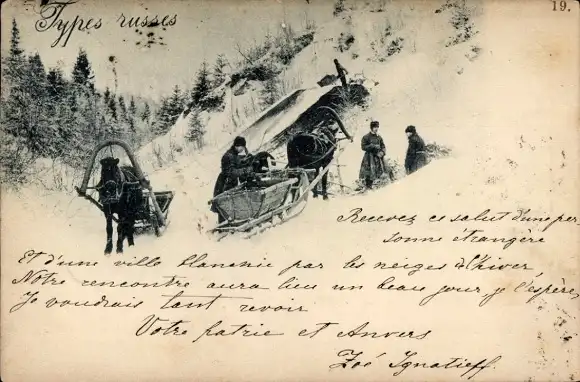 Types russes
19.
Recevez ce salut d'une per
sonne étrangère
Et d'une ville blanchie par les neiges d'hiver,
Notre rencontre aura lieu un beau jour, je l'espère,
Je voudrais tant revoir
Votre patrie et Anvers
Zoé Ignatieff.